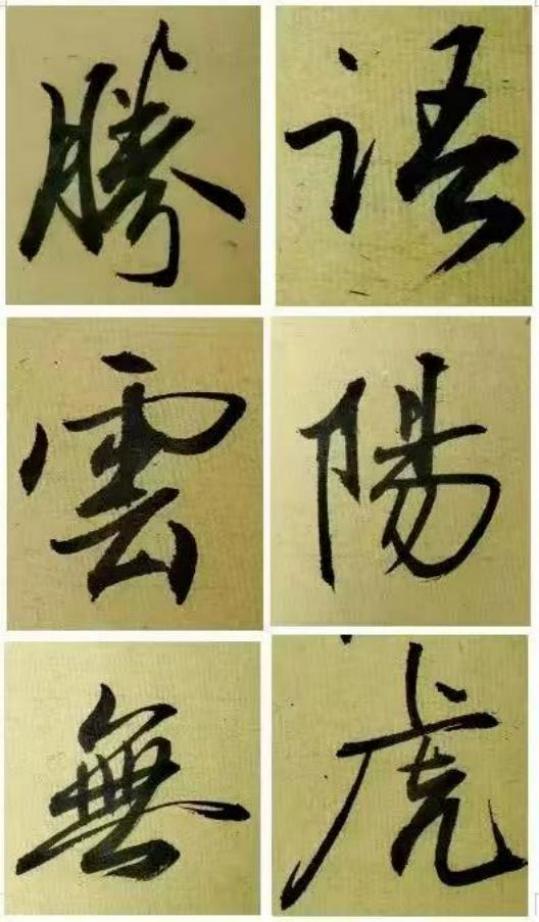 勝 語
雲 陽
無 虎